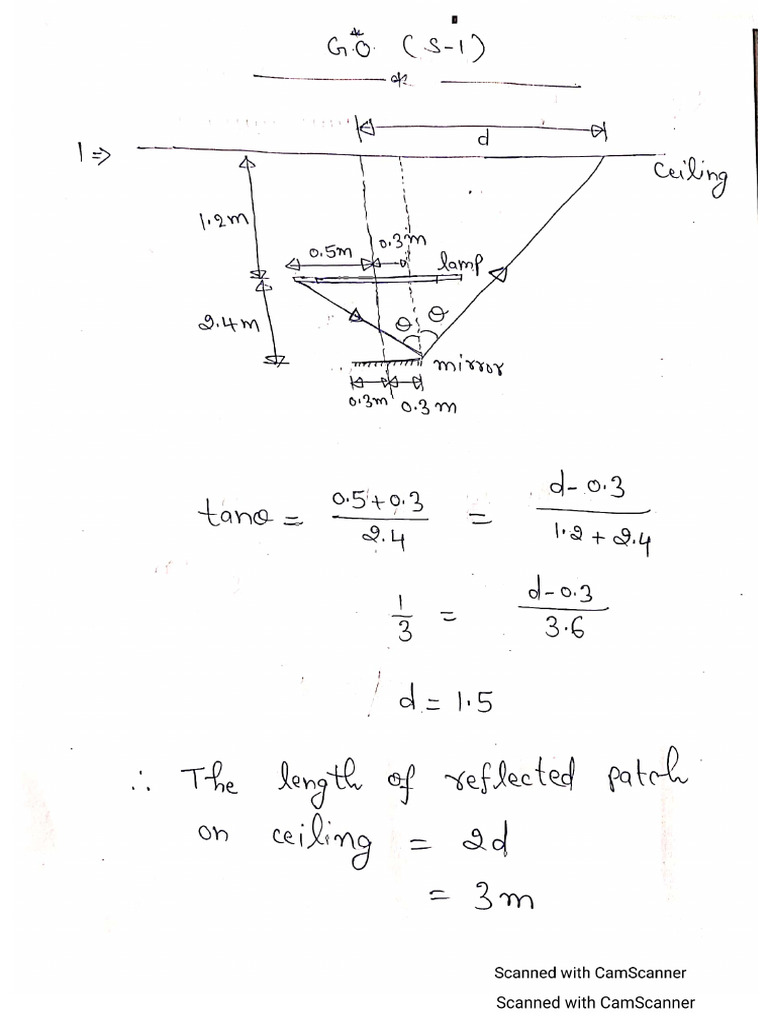 G.O. (S-1)
d
1⇒
Ceiling
1.2m
0.5m
0.3m
lamp
θ θ
2.4m
mirror
0.3m 0.3m
tanθ = (0.5+0.3)/2.4 = (d-0.3)/(1.2+2.4)
1/3 = (d-0.3)/3.6
d = 1.5
∴ The length of reflected patch
on ceiling = 2d
= 3m
Scanned with CamScanner
Scanned with CamScanner